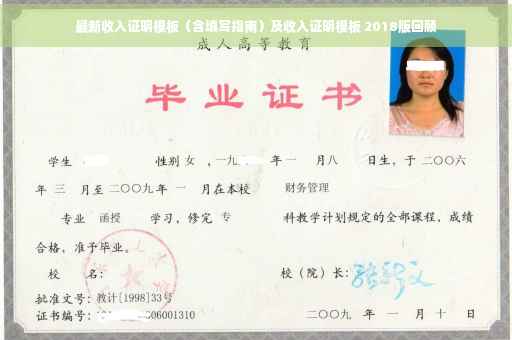 最新收入证明模板（含填写指南）及收入证明模板 2018版回顾
成人高等教育
毕业证书
学生 性别 女 ，一九 年 一 月八 日生，于 二〇〇六
年 三 月至 二〇〇九 年 一 月在本校 财务管理
专业 函授 学习，修完 专 科教学计划规定的全部课程，成绩
合格，准予毕业。
校 名： 校（院）长：
批准文号：教计[1998]33号
证书编号： 606001310 二〇〇九 年 一 月 十 日